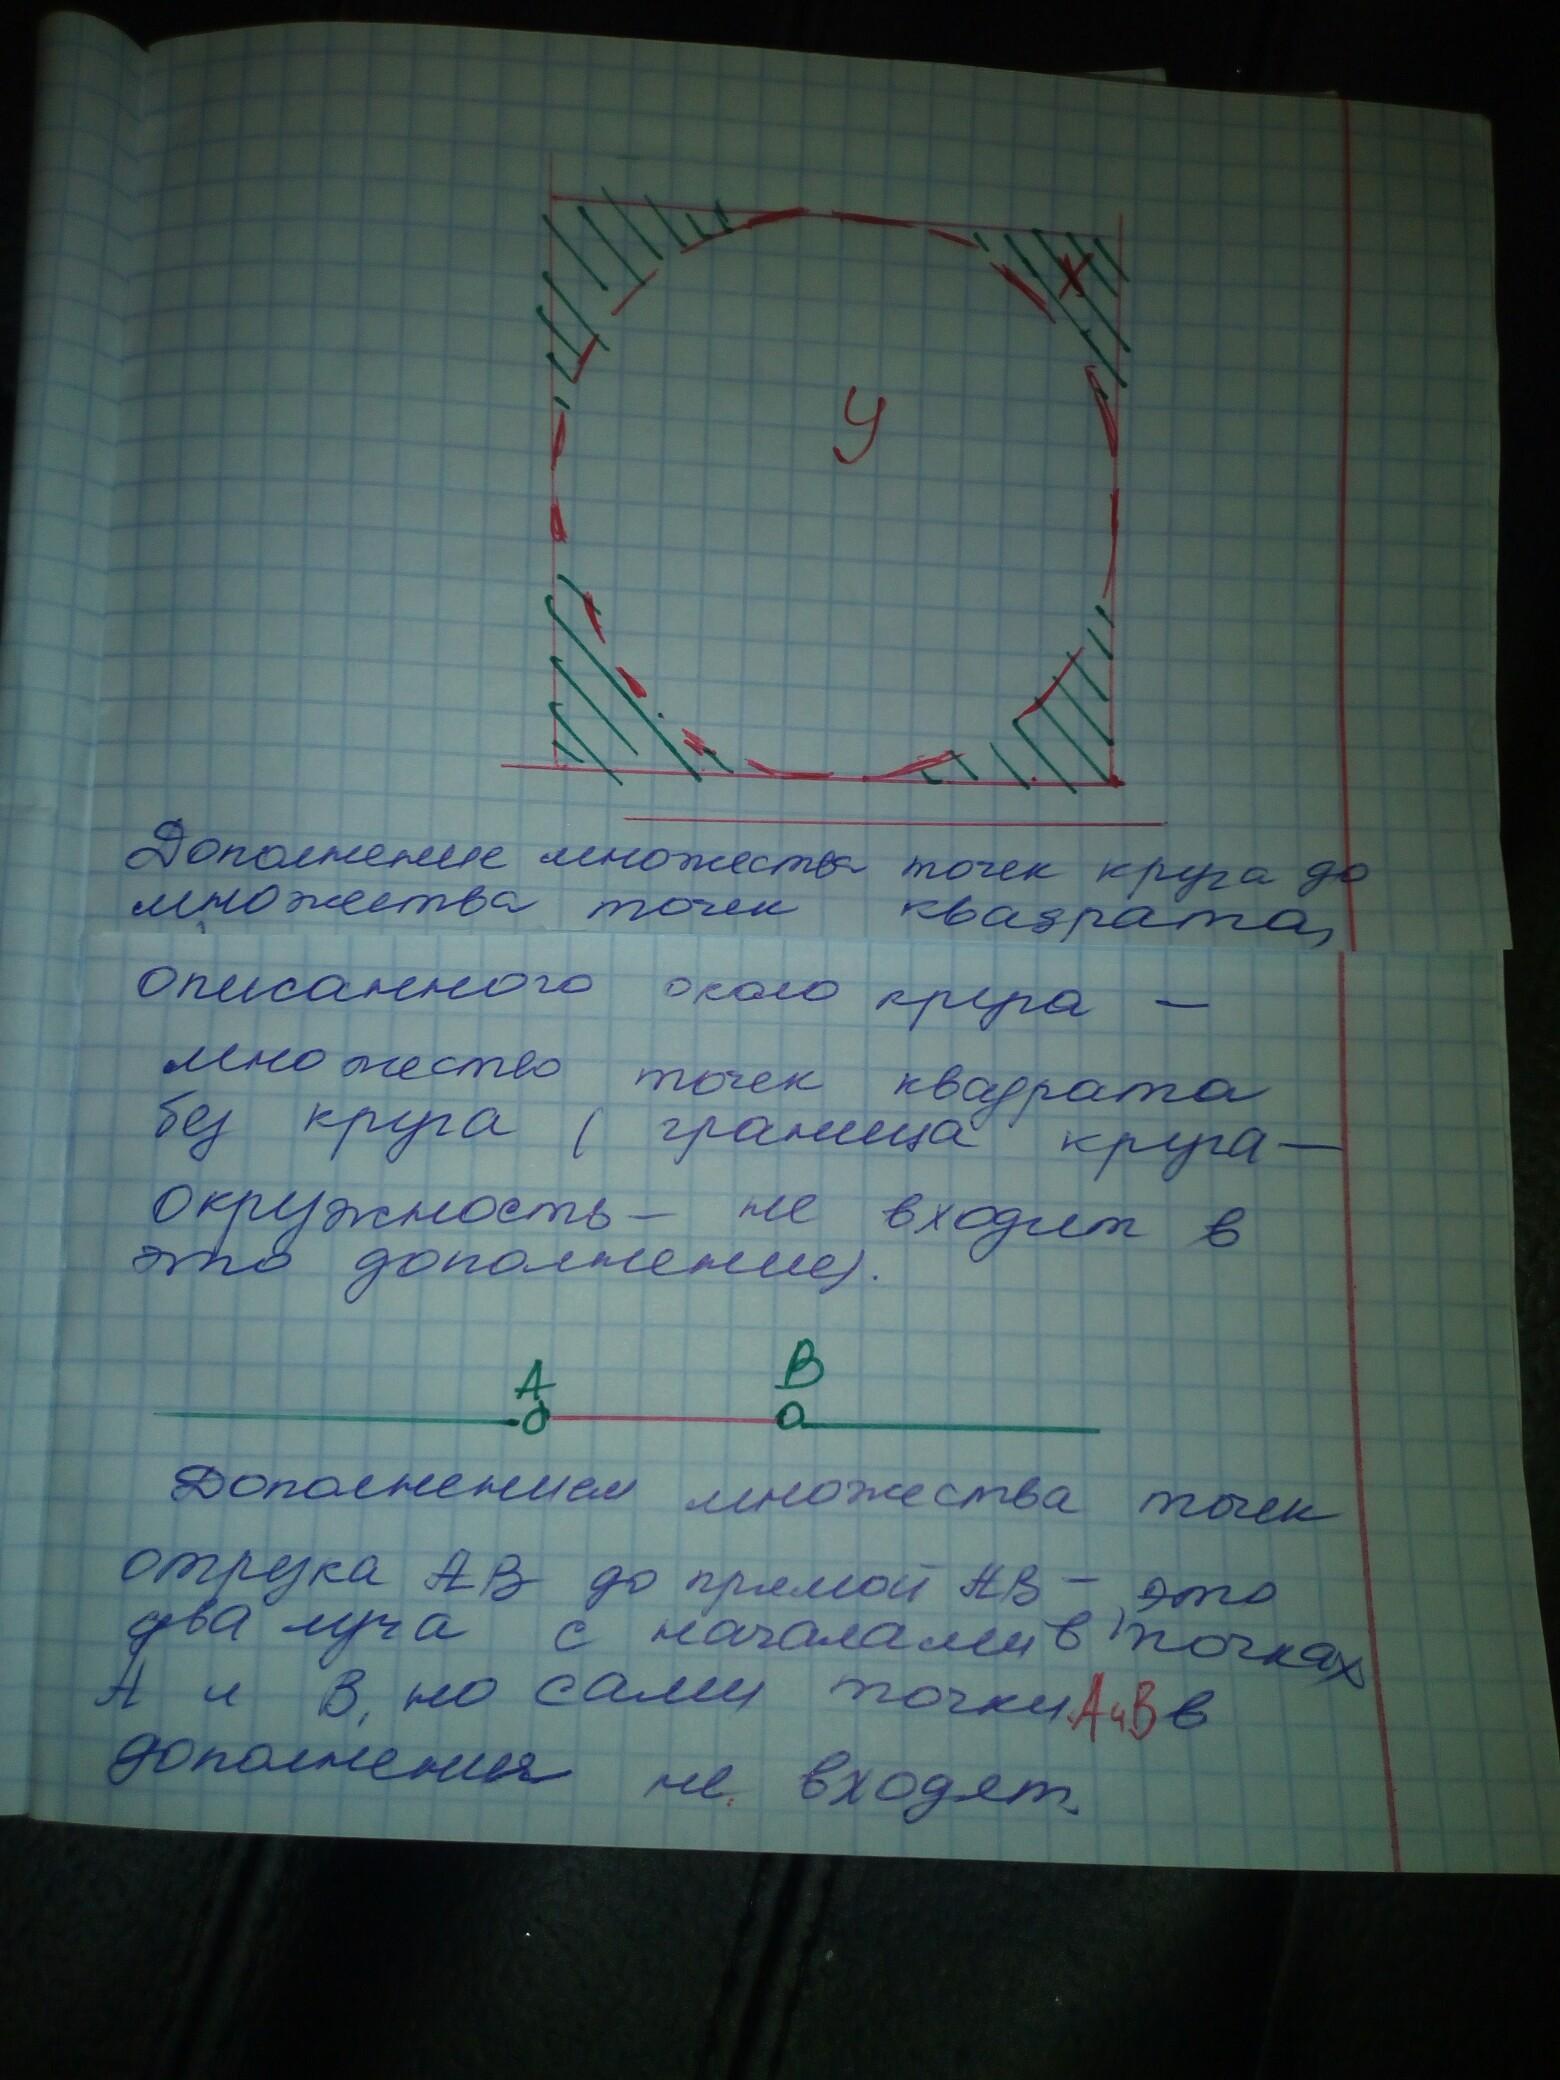 х
У
Дополнение множества точек круга до
множества точек квадрата,
описанного около круга —
множество точек квадрата
без круга ( граница круга —
окружность — не входит в
это дополнение).
A
B
Дополнением множества точек
отрезка АВ до прямой АВ — это
два луча с началами в точках
А и В, но сами точки А и В в
дополнения не входят.